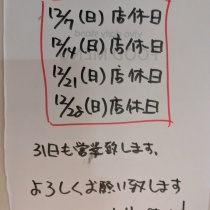 12/7(日)店休日
12/14(日)店休日
12/21(日)店休日
12/28(日)店休日
31日も営業致します。
よろしくお願い致します